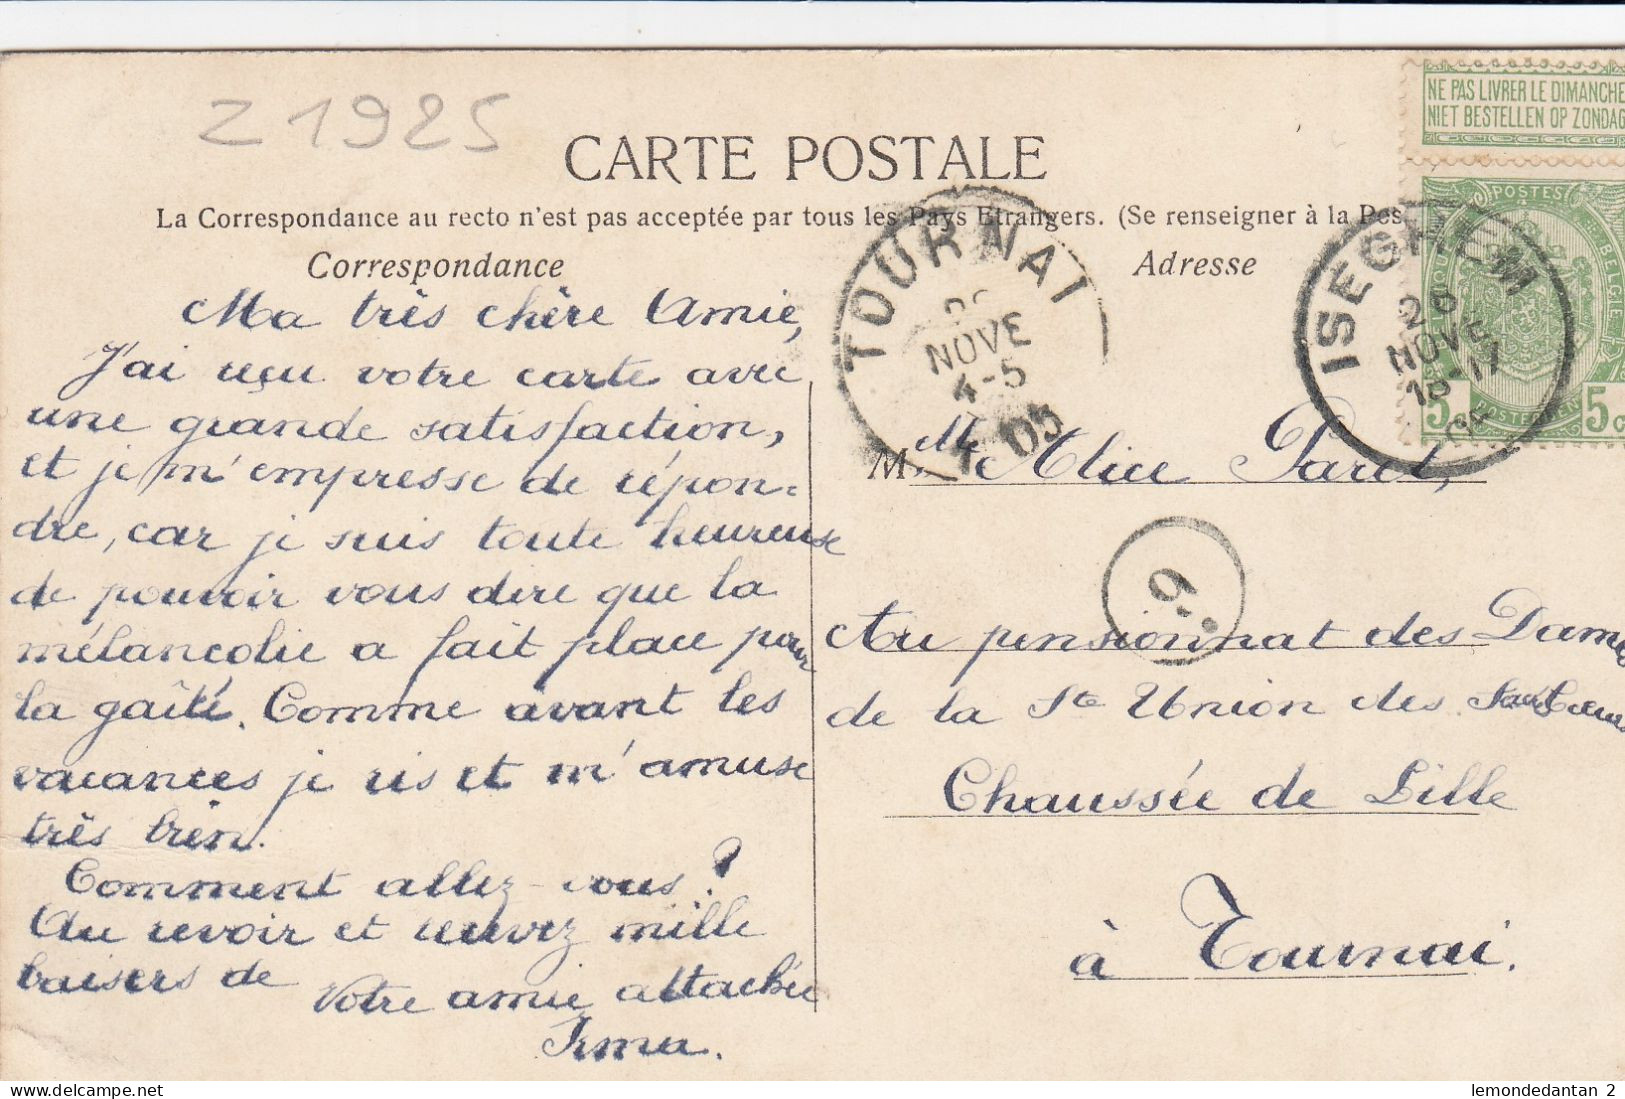 Z 1925
NE PAS LIVRER LE DIMANCHE
NIET BESTELLEN OP ZONDAG
CARTE POSTALE
POSTES
La Correspondance au recto n'est pas acceptée par tous les Pays Etrangers. (Se renseigner à la Pos
Correspondance
Adresse
TOURNAI
NOVE
4-5
05
ISEGHEM
26
NOVE
16-17
BELGIE
5c
POSTERIJEN
5c
Ma très chère Amie,
J'ai reçu votre carte avec
une grande satisfaction,
et je m'empresse de répon=
dre, car je suis toute heureuse
de pouvoir vous dire que la
mélancolie a fait place pour
la gaîté. Comme avant les
vacances je ris et m'amuse
très bien.
Comment allez-vous?
Au revoir et recevez mille
baisers de
Votre amie attachée
Irma.
Mlle Alice Paret,
6
Au pensionnat des Dames
de la Ste Union des Sacrés Cœurs
Chaussée de Lille
à Tournai.
https://www.delcampe.net
lemondedantan 2